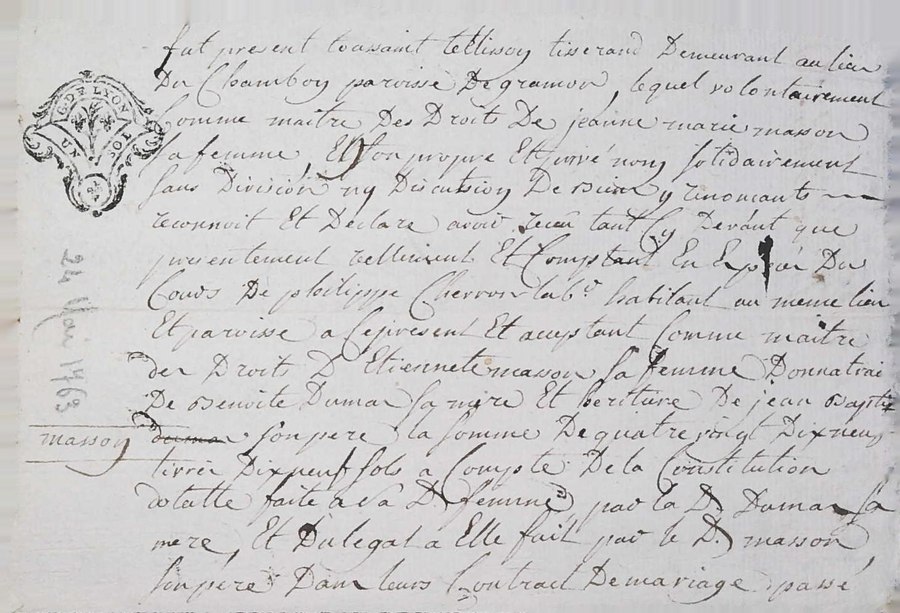 fut present toussaint tellissoy tisserand Demeurant au lieu
Du Chamboy paroisse De gramon, lequel volontairement
Comme maitre Des Droits De jeanne marie masson
sa femme, Et son propre Et privé nom solidairement
sans Division ny Discussion De Biens y renoncants
reconnoit Et Declare avoir receu tant Cy Devant que
presentement reellement Et Comptant En Espece Du
Cours De philippe Cherron lab.r habitant au meme lieu
Et paroisse a Ce present Et aceptant Comme maitre
des Droits D Etiennete masson sa femme Donnatrice
De Benoite Dumas sa mere Et heritiere De jean Baptiste
masson
son pere la somme De quatre vingt Dix neuf
livres Dix neuf sols a Compte De la Constitution
dotalle faite a sa D. femme par la D. Dumas sa
mere, Et Du legat a Elle fait par le D. masson
son pere Dans leurs Contract De mariage passé
G.D. DE LYON
24 Mai 1763